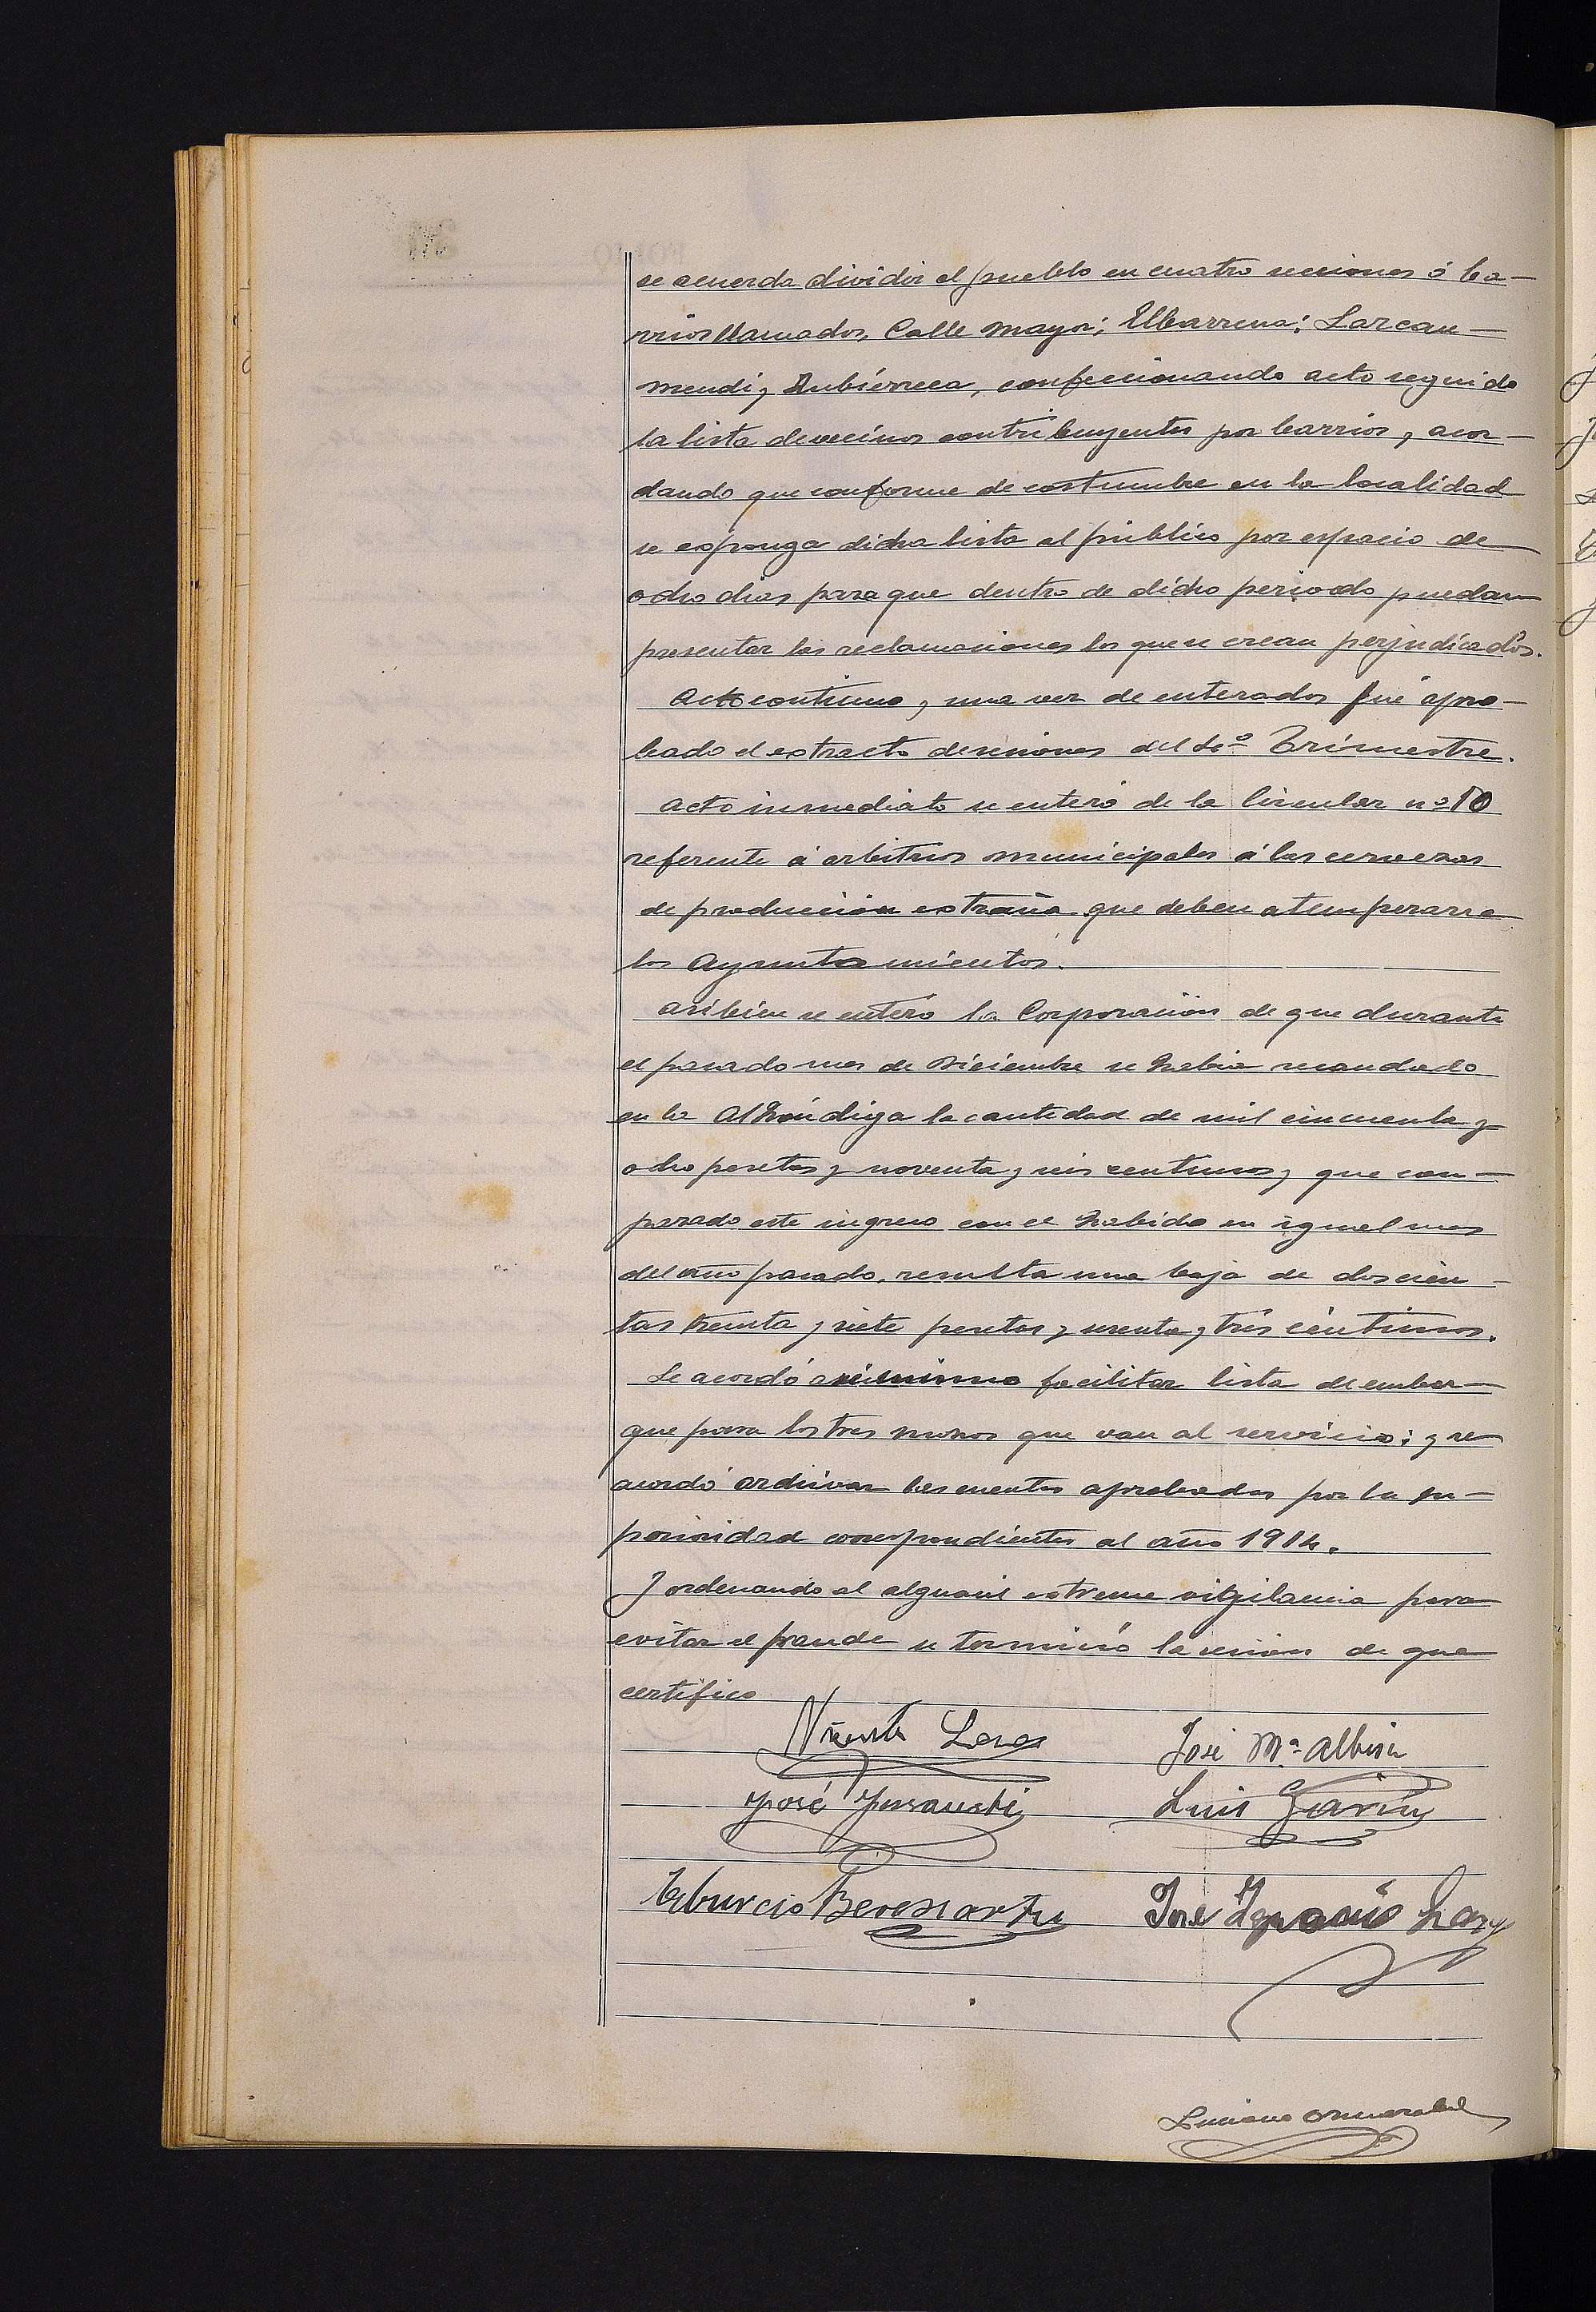 se acuerda dividir el pueblo en cuatro secciones ó ba-
rrios llamados, Calle mayor; Elbarrena; Larcau-
mendi, y Zubierreca, confeccionando acto seguido
la lista de vecinos contribuyentes por barrios, acor-
dando que conforme de costumbre en la localidad
se exponga dicha lista al público por espacio de
ocho dias para que dentro de dicho periodo puedan
presentar las reclamaciones los que se crean perjudicados.
Acto continuo, y una vez de enterados fué apro-
bado el extracto de sesiones del 4º Trimestre.
Acto inmediato se enteró de la Circular nº 10
referente á arbitrios municipales á las cervezas
de producción extraña que deben atemperarse
los Ayuntamientos.
Asi bien se enteró la Corporación de que durante
el pasado mes de Diciembre se habia recaudado
en la Alhóndiga la cantidad de mil cincuenta y
ocho pesetas y noventa y seis centimos, y que com-
parado este ingreso con el habido en igual mes
del año pasado, resulta una baja de doscien-
tas treinta y siete pesetas y sesenta y tres céntimos.
Se acordó asimismo facilitar lista de embar-
que para los tres mozos que van al servicio; y se
acordó archivar las cuentas aprobadas por la su-
perioridad correspondientes al año 1914.
Y ordenando al alguacil estreme vigilancia para
evitar el fraude se terminó la sesion de que
certifico
Vicente Lasa José Mª Albisu
José Insausti Luis Garin
Tiburcio Beresiartu José Ignacio
Luciano